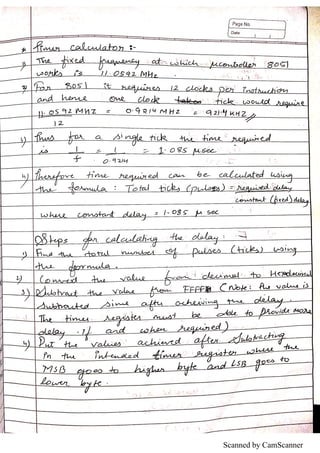 Page No.
Date
* Timer calculator :-
1) The fixed frequency at which μcontroller 8051
works is 11.0592 MHz
2) For 8051 it requires 12 clocks per instruction
and hence one clock tick would require
11.0592 MHz = 0.9214 MHz = 921.4 KHZ
12
3) Thus for a single tick the time required
is 1 = 1 = 1.085 μsec
f 0.924
4) Therefore time required can be calculated using
the formula : Total ticks (pulses) = required delay
constant (fixed) delay
where constant delay = 1.085 μ sec
Steps for calculating the delay :
1) Find the total number of pulses (ticks) using
the formula.
2) Convert the value from decimal to Hexadecimal
3) Subtract the value from FFFFH (Note: the value is
subtracted since after achieving the delay
The timer register must be able to provide more
delay if and when required)
4) Put the values achieved after subtracting
in the intended timer register where the
MSB goes to higher byte and LSB goes to
lower byte.
Scanned by CamScanner